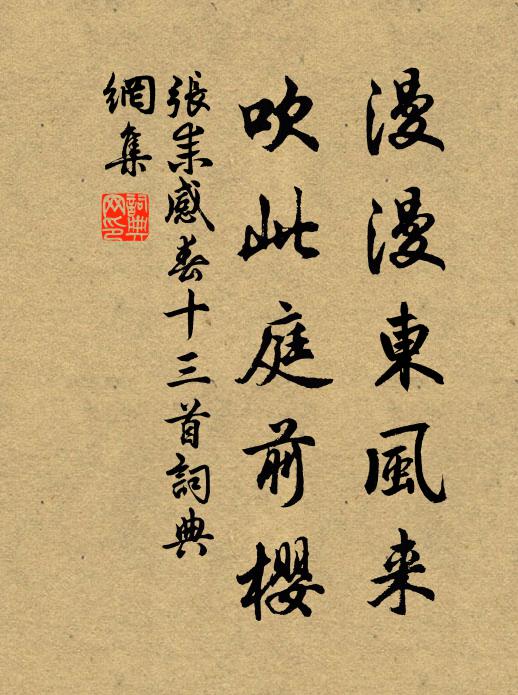 漫漫東風来
吹此庭前櫻
張耒感春十三首詞典
網集
詞典網印